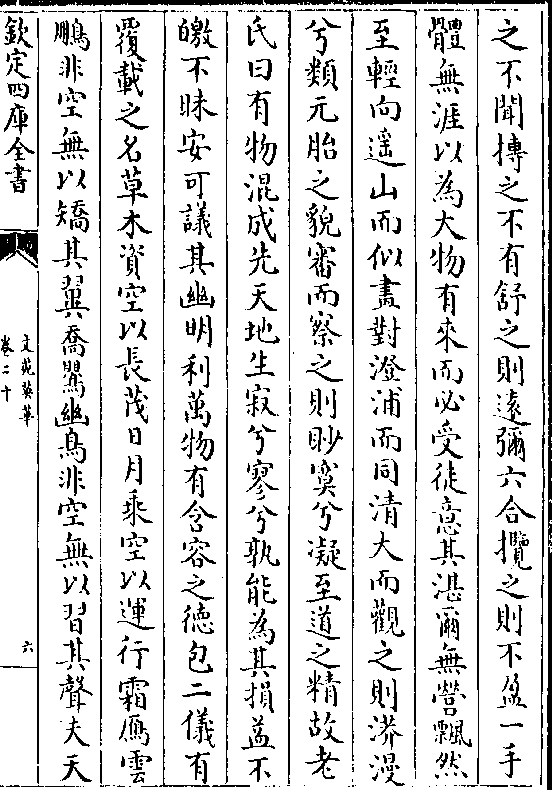 之不聞摶之不有舒之則遠彌六合攬之則不盈一手
體無涯以為大物有來而必受徒意其湛爾無營飄然
至輕向遥山而似畫對澄浦而同清大而觀之則漭漫
兮類元胎之貌審而察之則眇冥兮凝至道之精故老
氏曰有物混成先天地生寂兮寥兮孰能為其損益不
皦不昧安可議其幽明利萬物有含容之徳包二儀有
覆載之名草木資空以長茂日月乗空以運行霜鴈雲
鵬非空無以矯其翼喬鸎幽鳥非空無以習其聲夫天
欽定四庫全書
文苑英華
卷二十
六